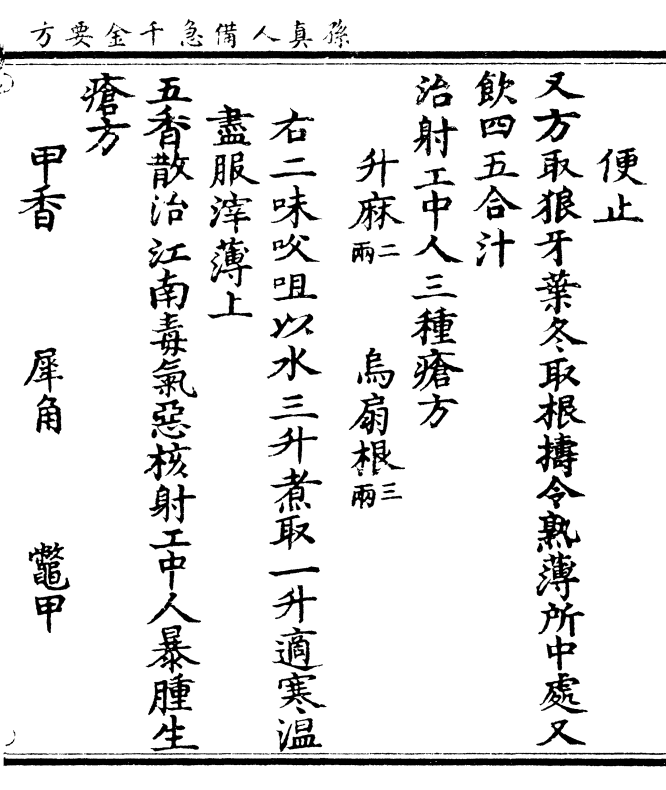 孫真人備急千金要方
便止
又方取狼牙葉冬取根擣令熟薄所中處又
飲四五合汁
治射工中人三種瘡方
升麻二兩 烏扇根三兩
右二味㕮咀以水三升煮取一升適寒溫
盡服滓薄上
五香散治江南毒氣惡核射工中人暴腫生
瘡方
甲香 犀角 鼈甲